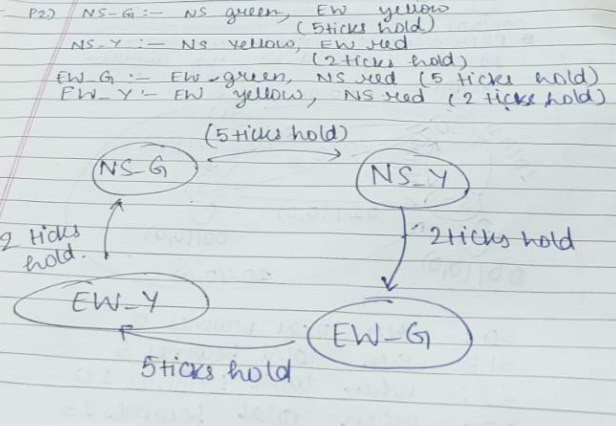 P2) NS-G:- NS green, EW yellow
(5ticks hold)
NS-Y :- NS yellow, EW red
(2 ticks hold)
EW_G :- EW-green, NS red (5 ticks hold)
EW_Y:- EW yellow, NS red (2 ticks hold)
(5ticks hold)
NS_G
NS_Y
2 ticks
hold.
2ticks hold
EW_Y
EW_G
5ticks hold